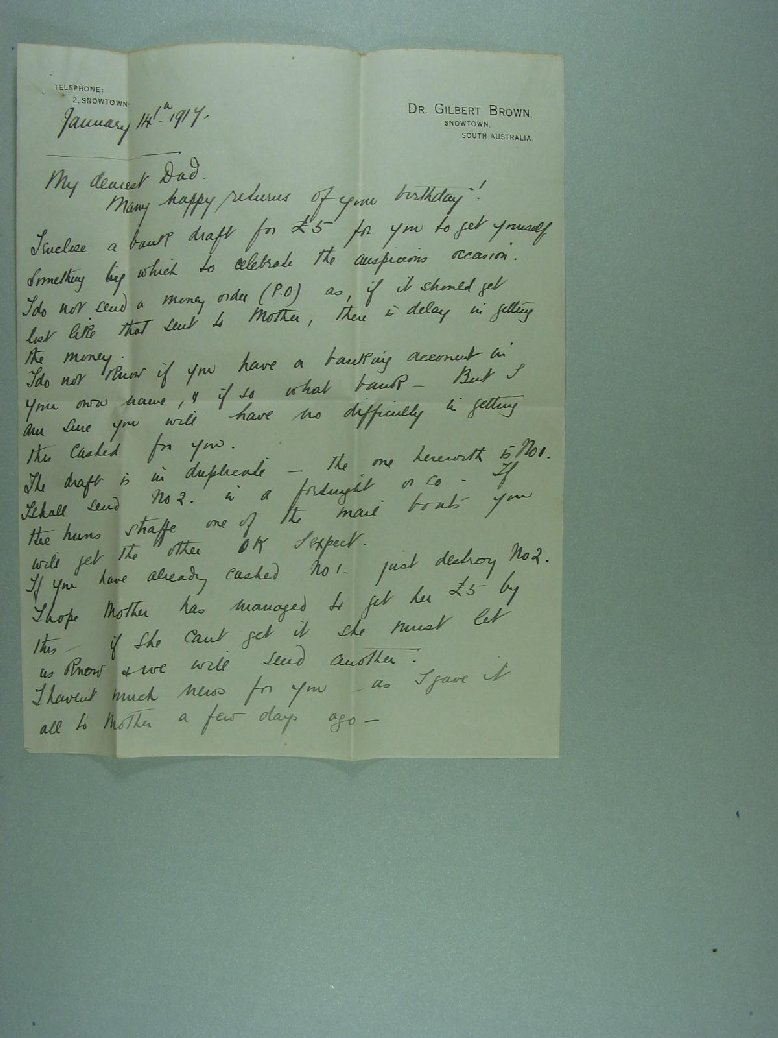 TELEPHONE:
2, SNOWTOWN.
DR. GILBERT BROWN,
SNOWTOWN,
SOUTH AUSTRALIA.
January 14th 1917.
My dearest Dad.
Many happy returns of your birthday!
I enclose a bank draft for £5 for you to get yourself
something by which to celebrate the auspicious occasion.
I do not send a money order (P O) as, if it should get
lost like that sent to Mother, there is delay in getting
the money.
I do not know if you have a banking account in
your own name, & if so what bank – But I
am sure you will have no difficulty in getting
this cashed for you.
The draft is in duplicate – the one herewith is No 1.
I shall send No 2. in a fortnight or so. If
the huns straffe one of the mail boats you
will get the other OK I expect.
If you have already cashed No 1 just destroy No 2.
I hope Mother has managed to get her £5 by
this – if she cant get it she must let
us know & we will send another.
I havent much news for you as I gave it
all to Mother a few days ago –